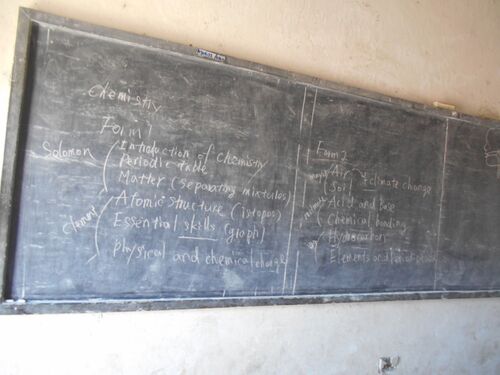 Chemistry
Form 1
Solomon
Introduction of chemistry
Periodic table
Matter (separating mixtures)
Atomic structure (isotopes)
Essential skills (graph)
Physical and chemical change
Form 2
Air climate change
Soil
Acid and base
Chemical bonding
Hydrocarbon
Elements and